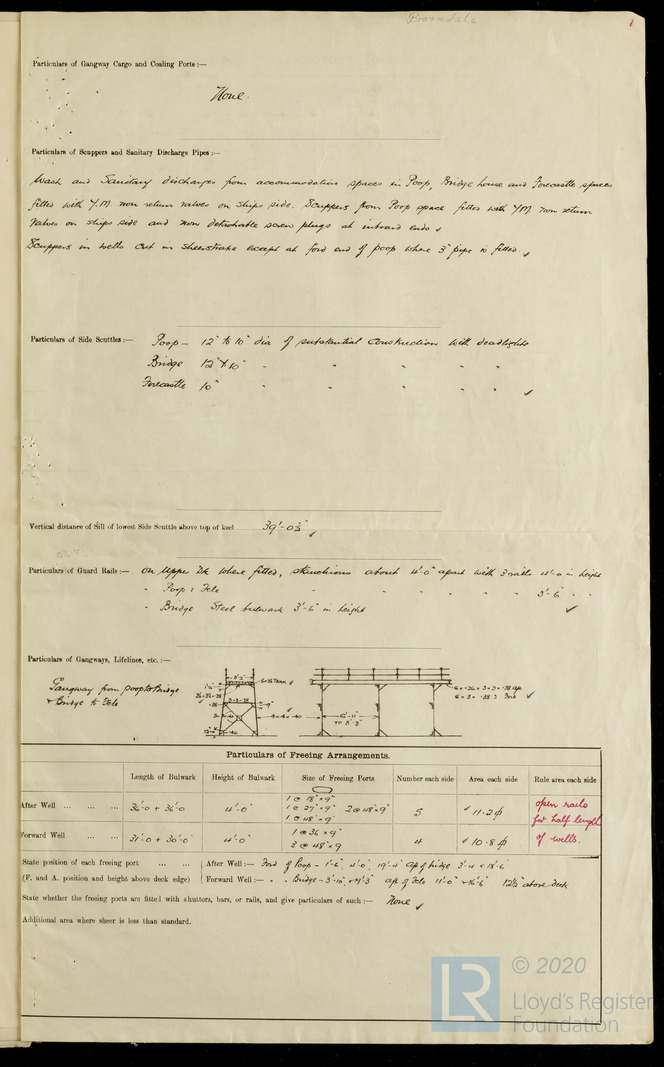 Particulars of Gangway Cargo and Coaling Ports :—
None.
Particulars of Scuppers and Sanitary Discharge Pipes :—
Wash and Sanitary discharges from accommodation spaces in Poop, Bridge house and Forecastle spaces
fitted with Y.M. non return valves on ships side. Scuppers from Poop space fitted with Y.M. non return
Valves on ships side and non detachable screw plugs at inboard ends ✓
Scuppers in wells cut in sheerstrake except at ford end of poop where 3" pipe is fitted. ✓
Particulars of Side Scuttles :— Poop – 12" to 10" dia of substantial construction with deadlights
Bridge 12" & 10" " " " " "
Forecastle 10" " " " " " ✓
Vertical distance of Sill of lowest Side Scuttle above top of keel 39'-0½" ✓
Particulars of Guard Rails :— on Upper Dk where fitted, stanchions about 4'-0" apart with 3 rails 4'-0 in height
" Poop & Fcle " " " " " 3'-6" " "
" Bridge Steel bulwark 3'-6" in height ✓
Particulars of Gangways, Lifelines, etc. :—
Gangway from poop to Bridge
& Bridge to Fcle
Particulars of Freeing Arrangements.
Length of Bulwark Height of Bulwark Size of Freeing Ports Number each side Area each side Rule area each side
After Well ... ... ... 36'-0 + 36'-0 4'-0" 1 @ 18" × 9" 1 @ 27" × 9" 1 @ 48" × 9" 2 @ 48" × 9" 5 ✓ 11.2 open rails for half length
Forward Well ... ... 31'-0 + 30'-0" 4'-0" 1 @ 36 × 9" 3 @ 48" × 9 4 ✓ 10.8 of wells.
State position of each freeing port ... ... After Well :— Ford of Poop – 1'-6", 4'-0", 19'-4" Ap of bridge 3'-4 & 18'-6"
(F. and A. position and height above deck edge) Forward Well :— " " Bridge – 3'-10", & 19'-3" ap. of Fcle 11'-0" & 16'-6" 12½" above deck
State whether the freeing ports are fitted with shutters, bars, or rails, and give particulars of such :— None ✓
Additional area where sheer is less than standard.
© 2020
LR
Lloyd's Register
Foundation